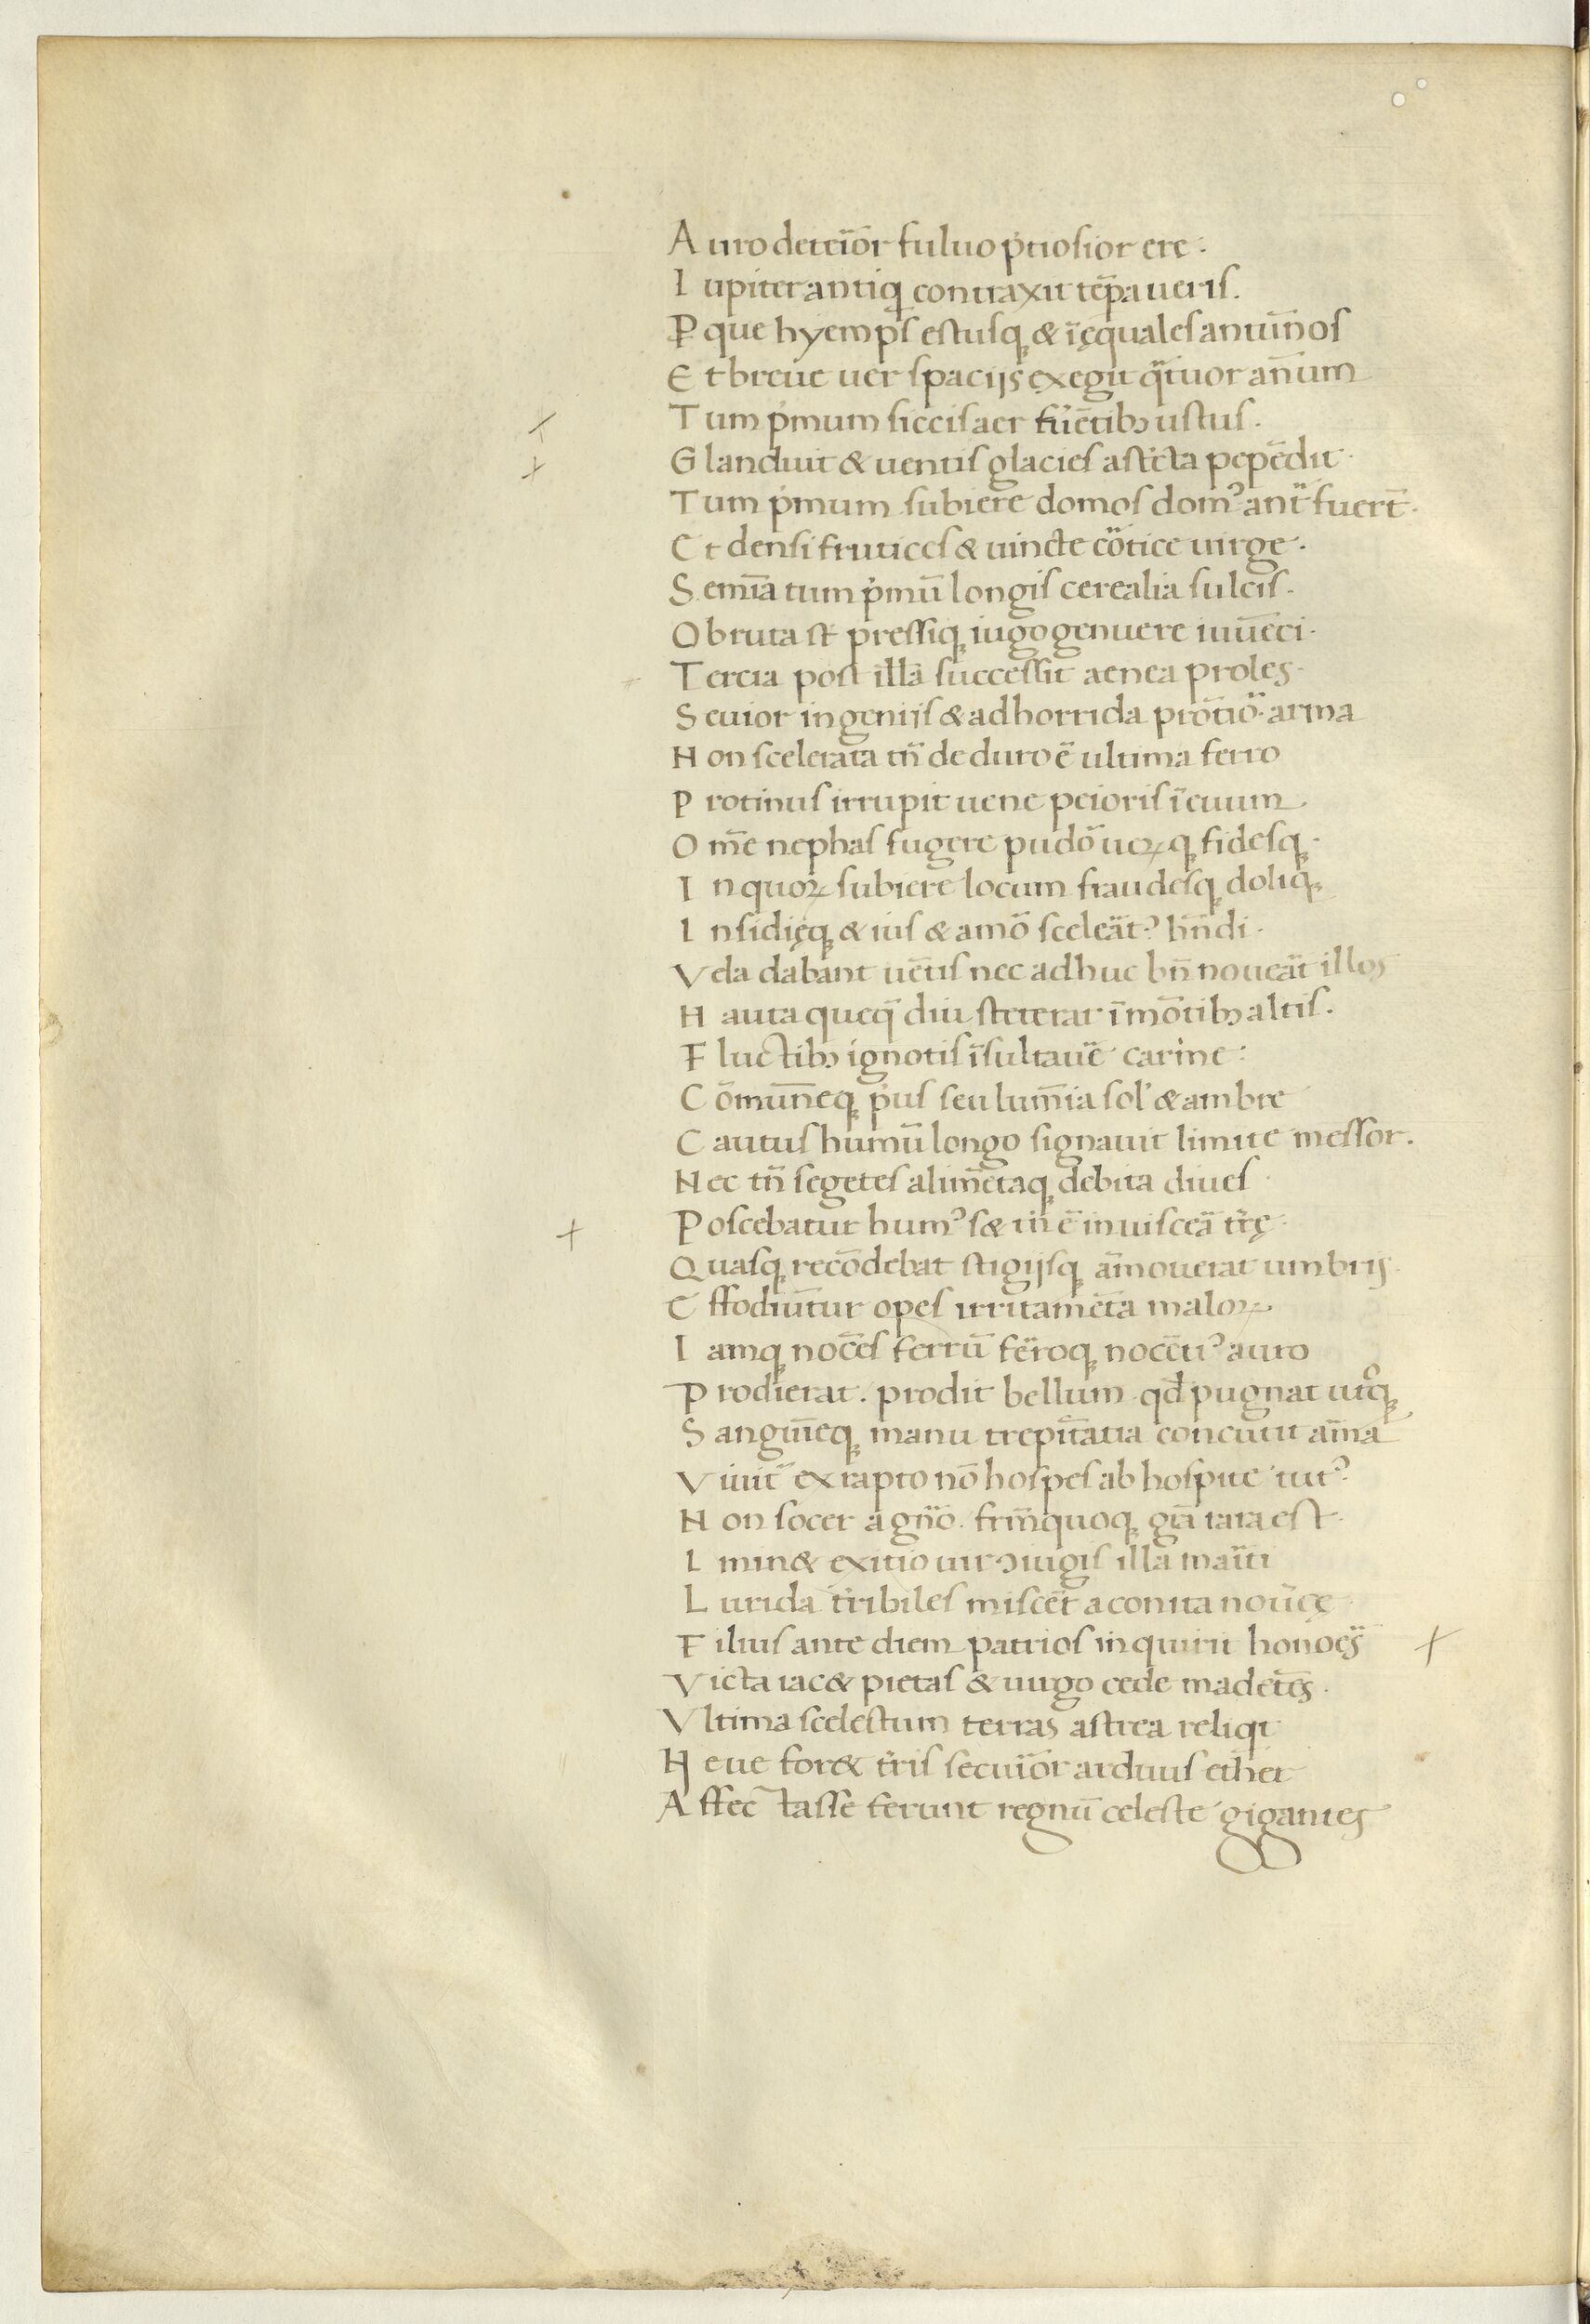 A uro deteiõr fuluo p̓tiosior ere :
I upiter antiq̨ contraxit tẽpa ueris .
P̱ que hyemps estusq̨ & ĩęquales autuũnos
E t breue uer spacijs exegit q̈tuor añum
T um p̓mum siccis aer fũ̓etibꝫ ustus .
G landuit & uentis glacies ast̓cta pepẽdit .
T um p̓mum subiere domos domꝰ ant̃ fuert̃ .
E t densi frutices & uincte cötice uirge .
S emĩa tum p̓mũ longis cerealia sulcis .
O bruta st̃ pressiq̨ iugo gemuere iuuẽci .
T ercia post illã successit aenea proles .
S euior ingenijs & ad horrida prõtiõ . arma
N on scelerata tñ de duro ẽ ultima ferro
P rotinus irrupit uene peioris ĩ euum
O m̃e nephas fugere pudõ ueꝝ q̨ fidesq̨ .
I n quoꝝ subiere locum fraudesq̨ doliq̨
I nsidięq̨ & ius & amõ sceleät .ꝰ hñdi .
V ela dabant uẽtis nec adhuc bñ noueät illos
N auta queq̃ diu steterar ĩ mõtibꝫ altis .
F luctibꝫ ignotis ĩsultauẽ carine :
C õmunẽeq̨ p̓us seu lumĩa sol' & ambre
C autus humũ longo signauit limite messor .
N ec tñ segetes alimẽtaq̨ debita diues
P oscebatur humꝰ s& iñ ẽ in uisceä tr̃ę .
Q uasq̨ recõdebat stigijsq̨ am̃ouerat umbrij
E ffodiuñtur opes irritamẽta maloꝝ
I amq̨ nocẽs ferrũ fëroq̨ nocẽtiꝰ auro
P rodierat . prodit bellum . qđ pugnat utͦq̨
S anguĩeq̨ manu trepiñtatia concutit am̃a
V iuit̃ ex rapto nõ hospes ab hospite tutꝰ
N on socer a gñõ . frm̃ quoq̨ gĩa rara est .
I min& exitio uir ↄiugis illa maiti
L urida t̓ribiles miscẽt aconita nou̓cę
F ilius ante diem patrios inquirit honoẽs
V icta iac& pietas & uirgo cede madetẽs .
V ltima scelestum terras astrea reliqt
N eue for& t̓ris securiõr arduus ether
A ffec tasse ferunt regnũ celeste gigantes